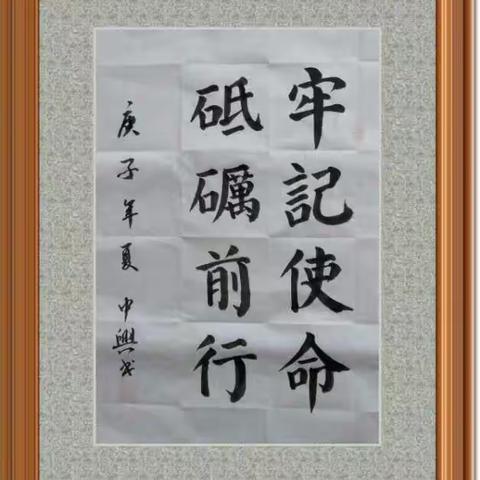 牢記使命
砥礪前行
庚子年夏 中興书